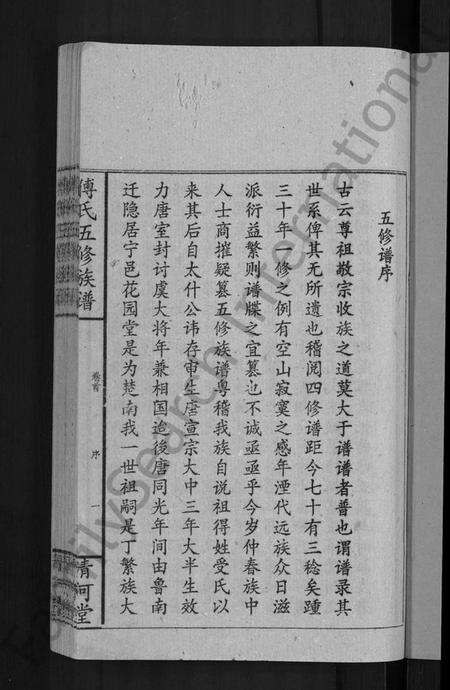 五修谱序
古云尊祖敬宗收族之道莫大于谱谱者普也谓谱录其
世系俾其无所遗也稽阅四修谱距今七十有三稔矣踵
三十年一修之例有空山寂寞之感年湮代远族众日滋
派衍益繁则谱牒之宜纂也不诚亟亟乎今岁仲春族中
人士商摧疑纂五修族谱粤稽我族自说祖得姓受氏以
来其后自太什公讳存审生唐宣宗大中三年大半生效
力唐室封讨虞大将年兼相国迨後唐同光年间由鲁南
迁隐居宁邑花园堂是为楚南我一世祖嗣是丁繁族大
傅氏五修族谱
卷首
序
一
清河堂
FamilySearch International